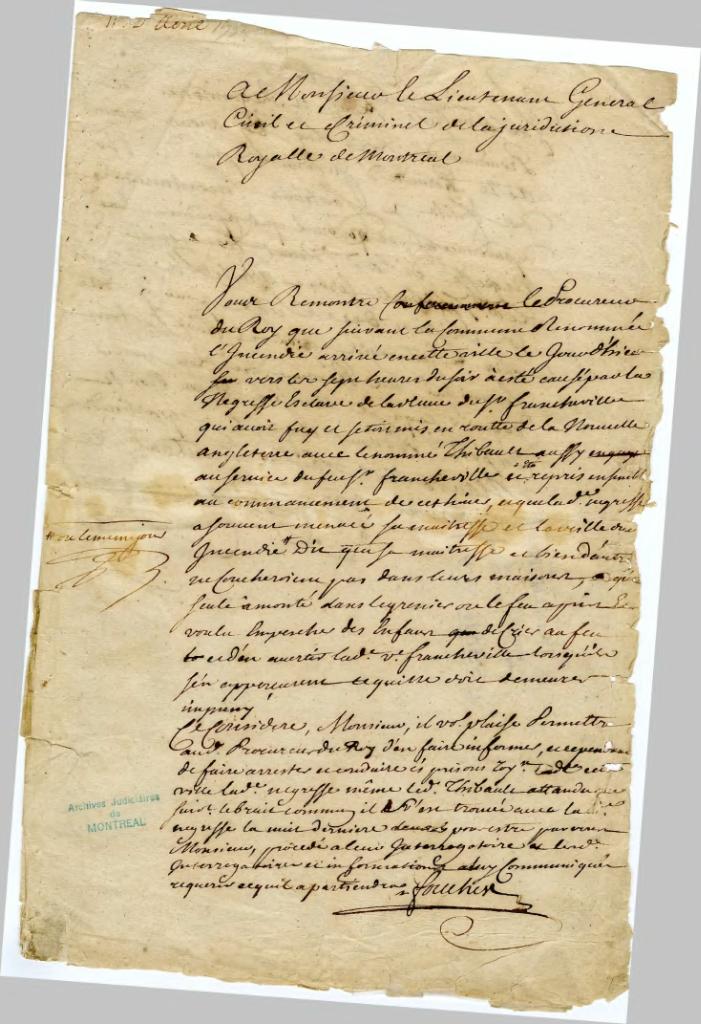 A Monsieur le Lieutenant General
Civil et Criminel de la juridictione
Royalle de Montreal
Vous Remontre le Procureur
du Roy que suivant la Commune Renommée
l'Incendie arrivé en cette ville le Jour d'hier
vers les sept heures du soir a esté causé par la
Negresse Esclave de la veuve du Sr francheville
qui avoit fuy et s'etoit mis en routte de la Nouvelle
angleterre avec le nommé Thibault aussy
au service du feu Sr. francheville et repris ensemble
au commancement de cet hiver, et que lad.e negresse
a souvent menacé sa maitresse et la veille du
ou le meme jour
Incendie Dit que sa maitresse et bien d'autres
ne Coucheroient pas dans leurs maisons, et que
seule a monté dans le grenier ou le feu a pris Et
voulu Empescher des Enfans de Crier au feu
et d'en avertir lad.e ve. francheville lorsqu'ils
s'en apperçurent ce qui ne doit demeurer
impuny
Ce Consideré, Monsieur, il vo.s plaise Permettre
aud. Procureur du Roy d'en faire informer, et cependant
de faire arrester et conduire és prisons Roy.
ville lad.e negresse même led. Thibault attendu que
suiv.t le bruit commun il s'est trouvé avec la d.e
negresse la nuit derniere pour estre par vous
Monsieur, procedé a leur Interrogatoire et lesd.
Interrogatoires et informations a luy Communiqués
requerir ce qu'il apartiendra
foucher
Archives Judiciaires
de
MONTREAL